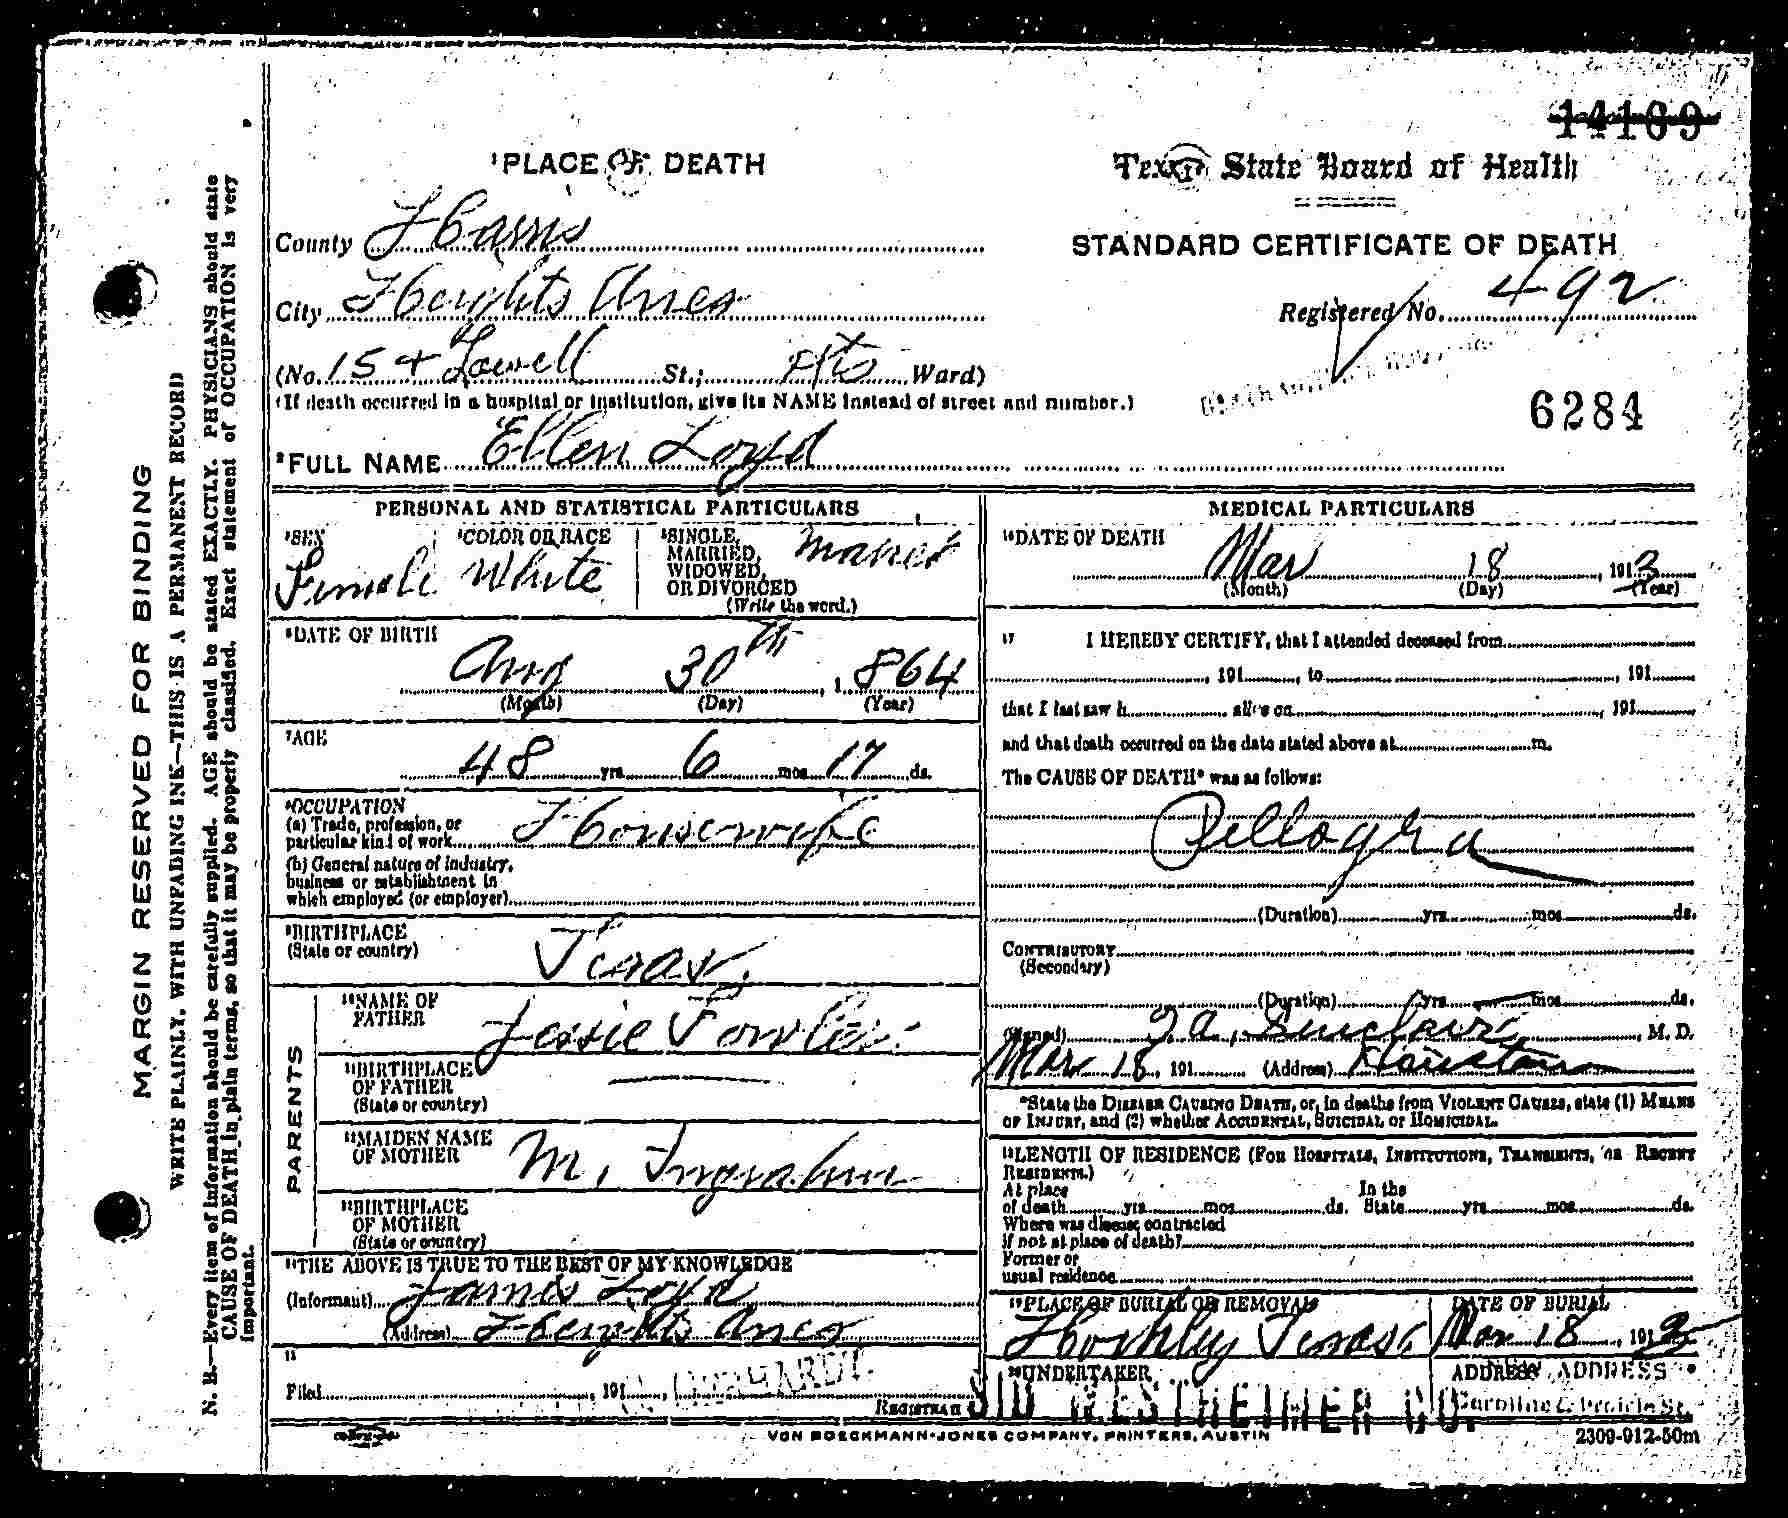 14109
¹PLACE OF DEATH
Texas State Board of Health
County Harris
STANDARD CERTIFICATE OF DEATH
City Heights Annex
Registered No. 492
(No. 15 + Lowell St.; Hts Ward)
(If death occurred in a hospital or institution, give its NAME instead of street and number.)
6284
²FULL NAME Ellen Loyd
PERSONAL AND STATISTICAL PARTICULARS
³SEX Female
⁴COLOR OR RACE White
⁵SINGLE, MARRIED, WIDOWED, OR DIVORCED (Write the word.) Married
⁶DATE OF BIRTH
Aug 30th, 1864
(Month) (Day) (Year)
⁷AGE
48 yrs. 6 mos. 17 ds.
⁸OCCUPATION
(a) Trade, profession, or
particular kind of work Housewife
(b) General nature of industry,
business or establishment in
which employed (or employer)
⁹BIRTHPLACE
(State or country) Texas
PARENTS
¹⁰NAME OF
FATHER Jessie Fowler
¹¹BIRTHPLACE
OF FATHER
(State or country)
¹²MAIDEN NAME
OF MOTHER M. Ingrahm
¹³BIRTHPLACE
OF MOTHER
(State or country)
¹⁴THE ABOVE IS TRUE TO THE BEST OF MY KNOWLEDGE
(Informant) James Loyd
(Address) Heights Annex
¹⁵
Filed , 191
REGISTRAR
MEDICAL PARTICULARS
¹⁶DATE OF DEATH
Mar 18, 1913
(Month) (Day) (Year)
¹⁷ I HEREBY CERTIFY, that I attended deceased from
, 191 , to , 191
that I last saw h alive on , 191
and that death occurred on the date stated above at m.
The CAUSE OF DEATH* was as follows:
Pellogra
(Duration) yrs. mos. ds.
CONTRIBUTORY
(Secondary)
(Duration) yrs. mos. ds.
(Signed) Sinclair, M. D.
Mar 18, 191 (Address) Houston
*State the DISEASE CAUSING DEATH, or, in deaths from VIOLENT CAUSES, state (1) MEANS
OF INJURY, and (2) whether ACCIDENTAL, SUICIDAL or HOMICIDAL.
¹⁸LENGTH OF RESIDENCE (FOR HOSPITALS, INSTITUTIONS, TRANSIENTS, OR RECENT
RESIDENTS.)
At place In the
of death yrs. mos. ds. State yrs. mos. ds.
Where was disease contracted
if not at place of death?
Former or
usual residence
¹⁹PLACE OF BURIAL OR REMOVAL DATE OF BURIAL
Hockley Texas Mar 18, 1913
²⁰UNDERTAKER ADDRESS ADDRESS
SID WESTHEIMER CO.
VON BOECKMANN-JONES COMPANY, PRINTERS, AUSTIN
2309-912-50m
MARGIN RESERVED FOR BINDING
WRITE PLAINLY, WITH UNFADING INK—THIS IS A PERMANENT RECORD
N. B.—Every item of information should be carefully supplied. AGE should be stated EXACTLY. PHYSICIANS should state
CAUSE OF DEATH in plain terms, so that it may be properly classified. Exact statement of OCCUPATION is very
important.